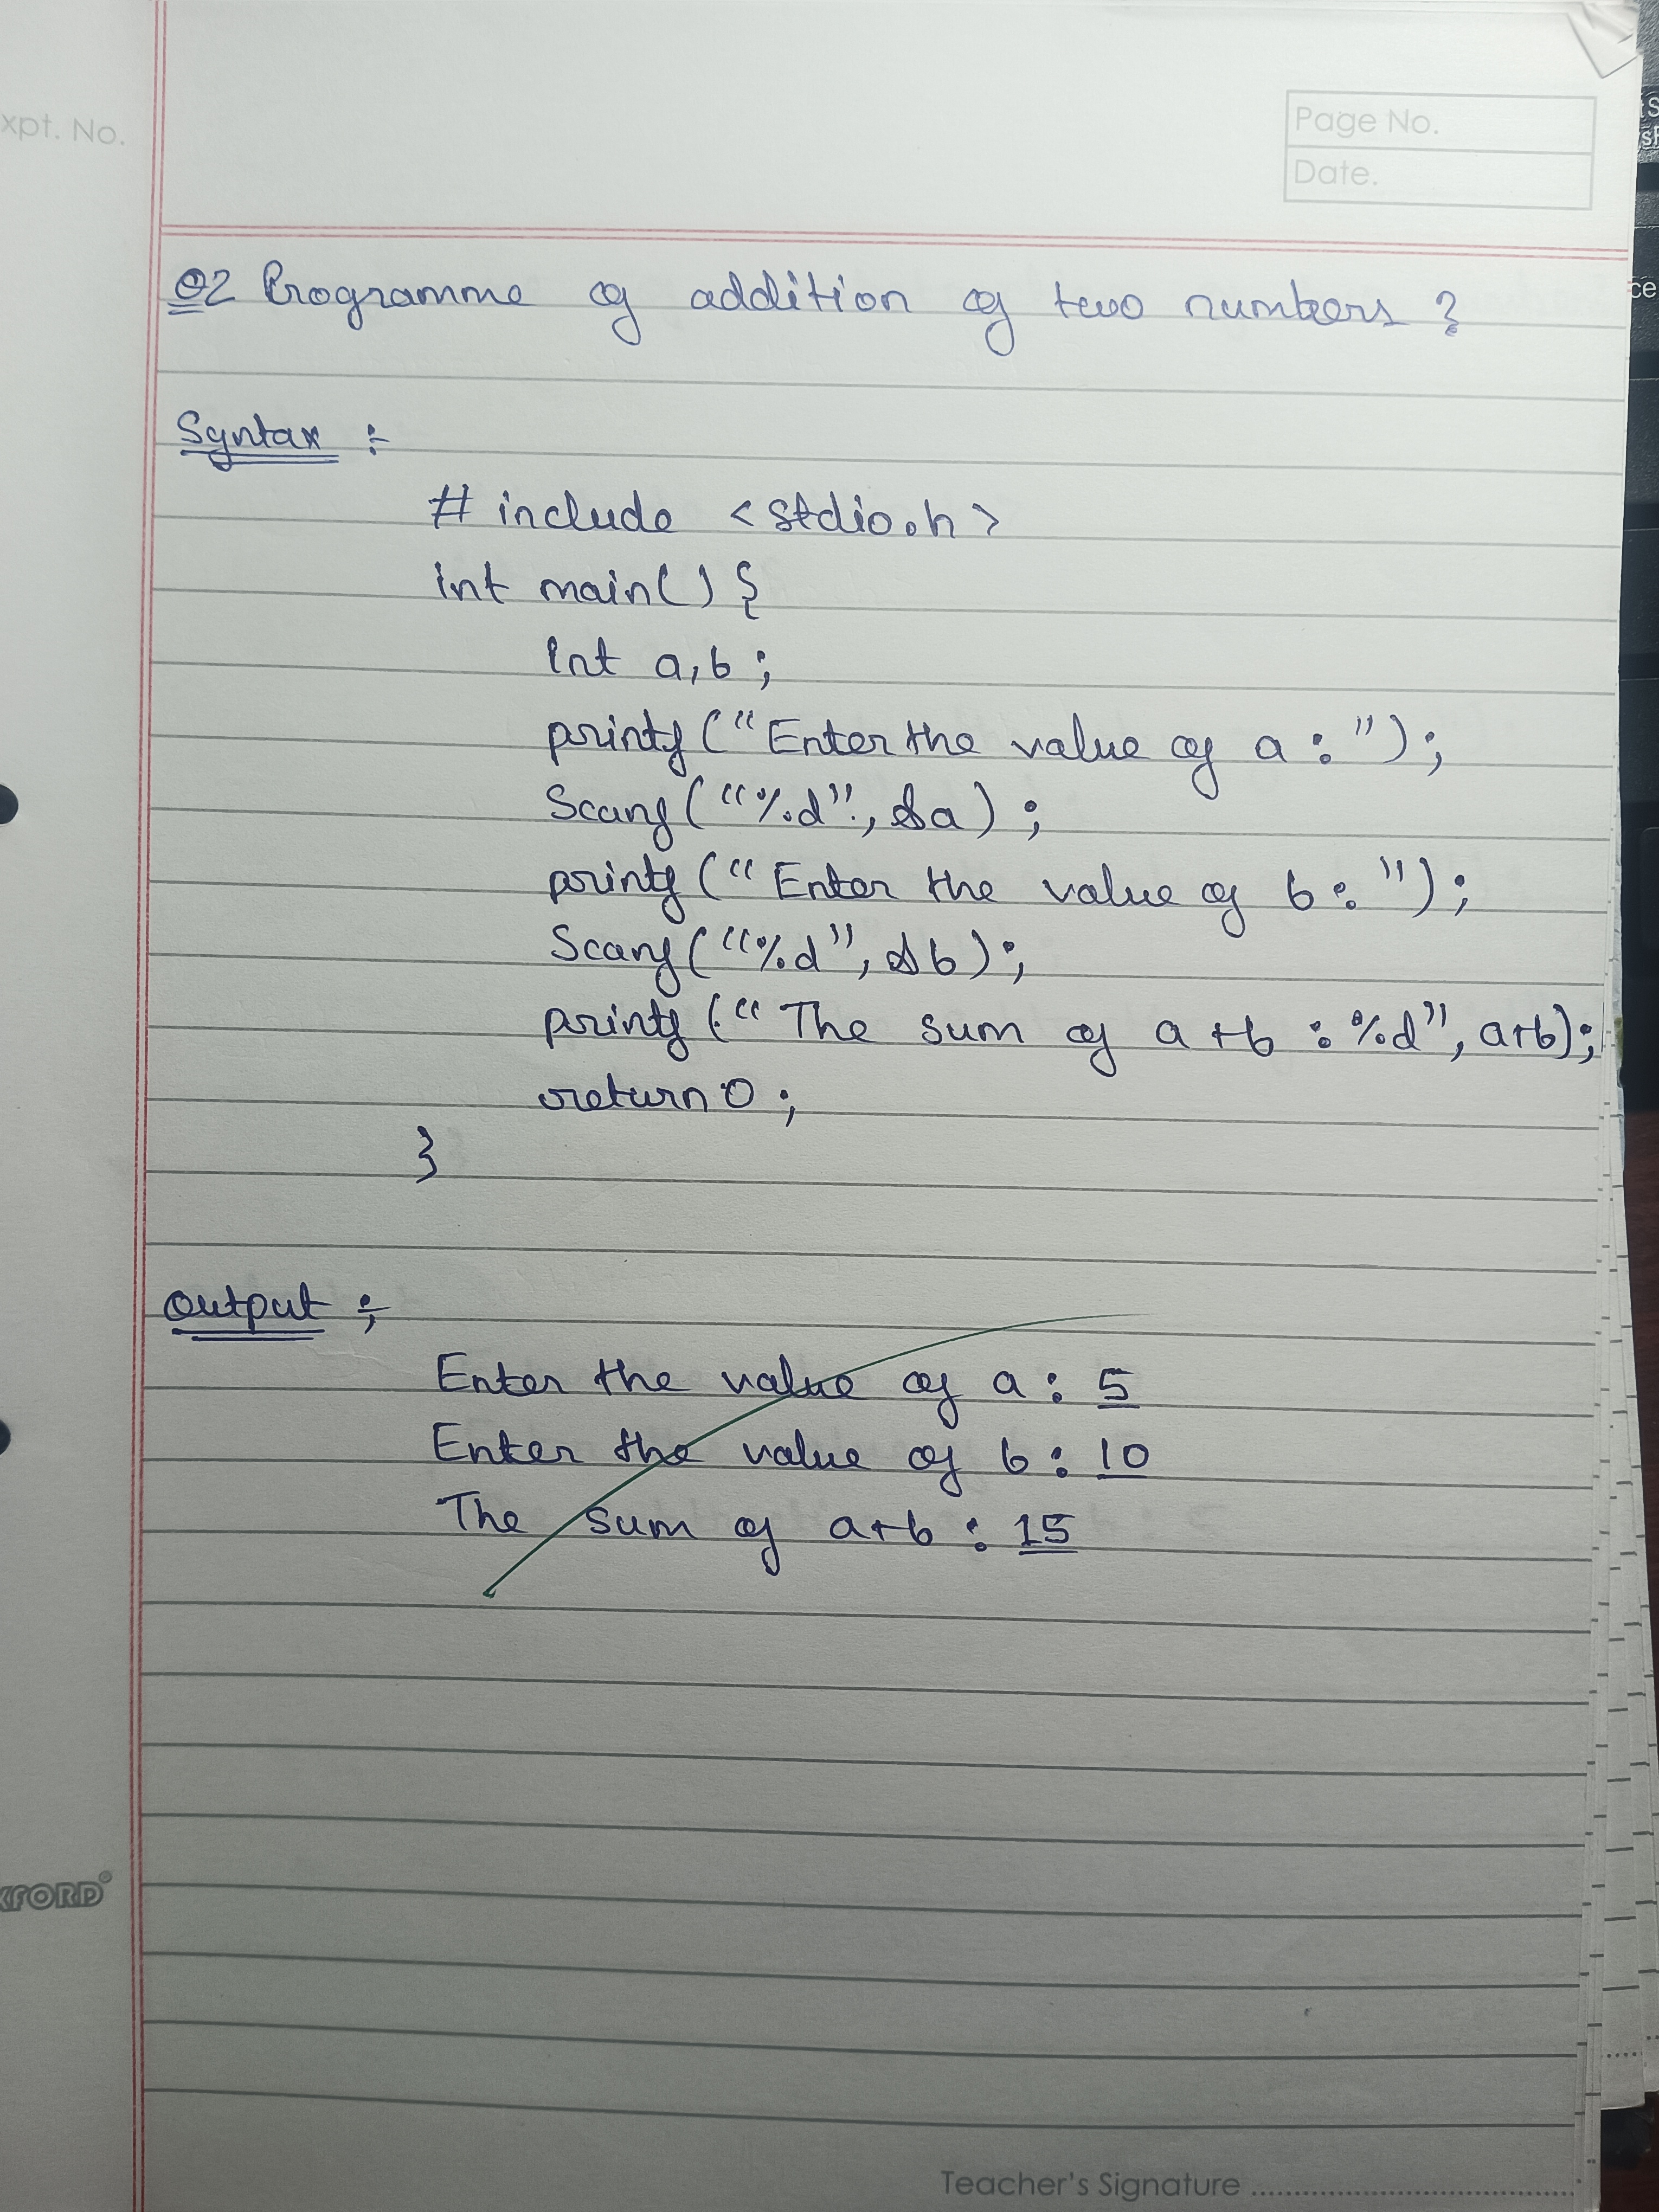 xpt. No.
Page No.
Date.
Q2 Programme of addition of two numbers ?
Syntax :-
# include <stdio.h>
int main() {
int a,b ;
printf ("Enter the value of a : ");
Scanf ("%d", &a) ;
printf (" Enter the value of b : ");
Scanf ("%d", &b) ;
printf (" The sum of a+b : %d", a+b);
return 0 ;
}
Output ;-
Enter the value of a : 5
Enter the value of b : 10
The sum of a+b : 15
XFORD
Teacher's Signature